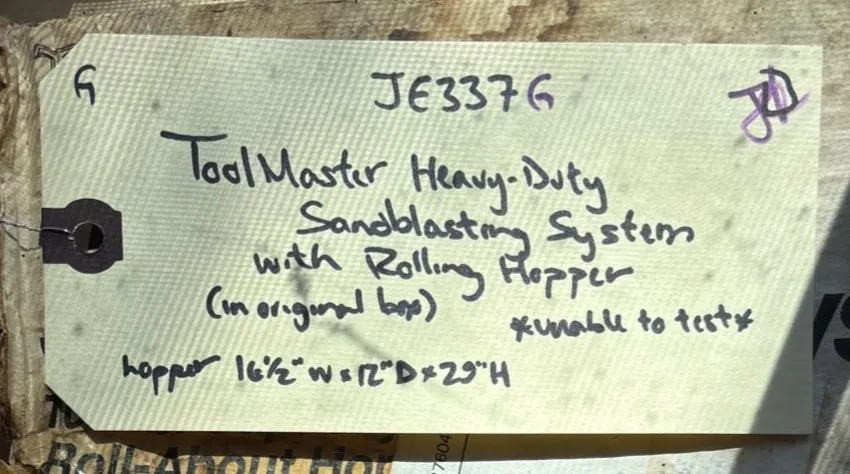 G
JE337G
JD
ToolMaster Heavy-Duty
Sandblasting System
with Rolling Hopper
(in original box)
*unable to test*
hopper 16½" W x 12" D x 29" H
Roll-About Hop
7604